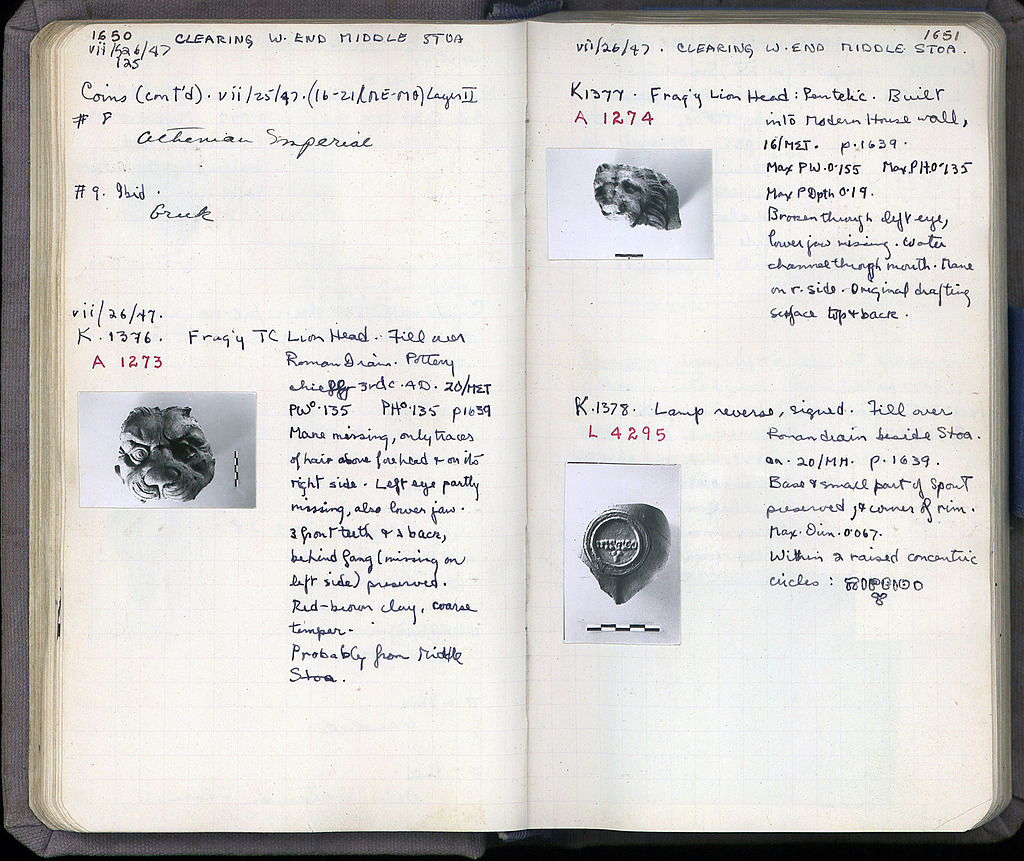 1650
vii/526/47 CLEARING W. END MIDDLE STOA
125
Coins (cont'd). vii/25/47. (16-21/ME-MΘ) Layer II
# 8
Athenian Imperial
# 9. Ibid.
Greek
vii/26/47.
K.1376. Frag'y TC Lion Head. Fill over
A 1273
Roman Drain. Pottery
chiefly 3rd c. A.D. 20/MΣT
PW 0.135 PH 0.135 p1639
Mane missing, only traces
of hair above forehead & on its
right side. Left eye partly
missing, also lower jaw.
3 front teeth & 2 back,
behind fang (missing on
left side) preserved.
Red-brown clay, coarse
temper.
Probably from Middle
Stoa.
1651
vii/26/47. CLEARING W. END MIDDLE STOA.
K1377. Frag'y Lion Head: Pentelic. Built
A 1274
into Modern House wall,
16/MΣT. p.1639.
Max PW. 0.155 Max PH. 0.135
Max P Dpth 0.19.
Broken through left eye,
lower jaw missing. Water
channel through mouth. Mane
on r. side. Original drafting
surface top & back.
K.1378. Lamp reverse, signed. Fill over
L 4295
Roman drain beside Stoa.
20/MH. p.1639.
Base & small part of spout
preserved, & corner of rim.
Max. Dim. 0.067.
Within 2 raised concentric
circles: